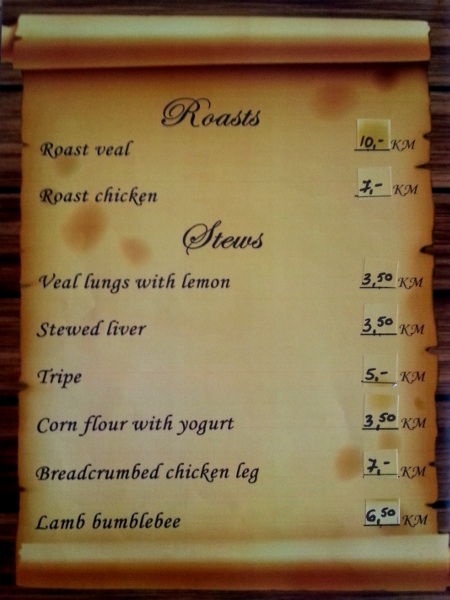 Roasts
Roast veal 10,- KM
Roast chicken 7,- KM
Stews
Veal lungs with lemon 3,50 KM
Stewed liver 3,50 KM
Tripe 5,- KM
Corn flour with yogurt 3,50 KM
Breadcrumbed chicken leg 7,- KM
Lamb bumblebee 6,50 KM